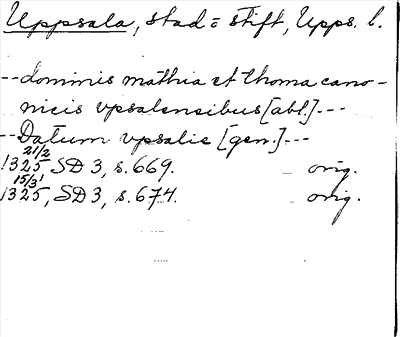 Uppsala, stad = stift, Upps. l.
--dominis mathia et thoma cano-
nicis vpsalensibus [abl.]---
--Datum vpsalie [gen.]---
21/2
1325, SD 3, s. 669. orig.
15/3
1325, SD 3, s. 674. orig.